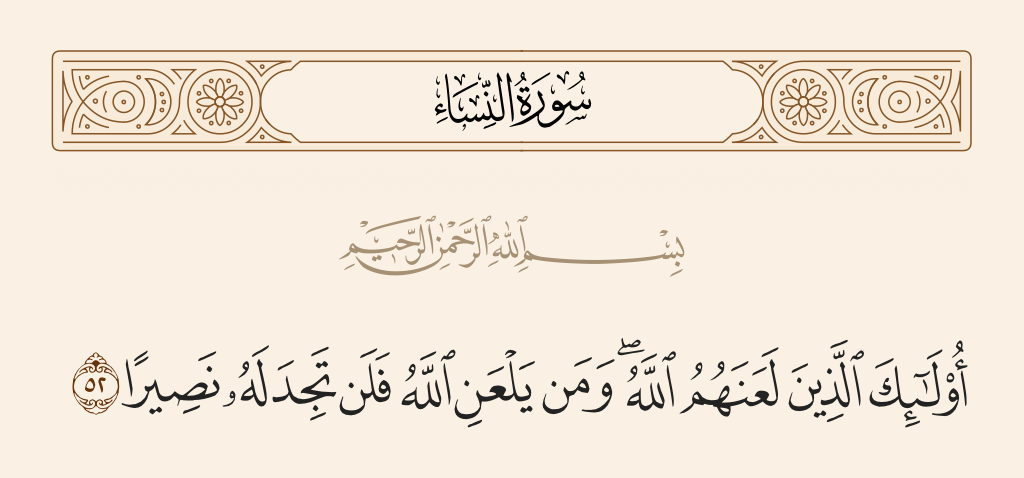 سُورَةُ النِّسَاءِ
بِسْمِ ٱللَّهِ ٱلرَّحْمَٰنِ ٱلرَّحِيمِ
أُو۟لَٰٓئِكَ ٱلَّذِينَ لَعَنَهُمُ ٱللَّهُ ۖ وَمَن يَلْعَنِ ٱللَّهُ فَلَن تَجِدَ لَهُۥ نَصِيرًا ٥٢